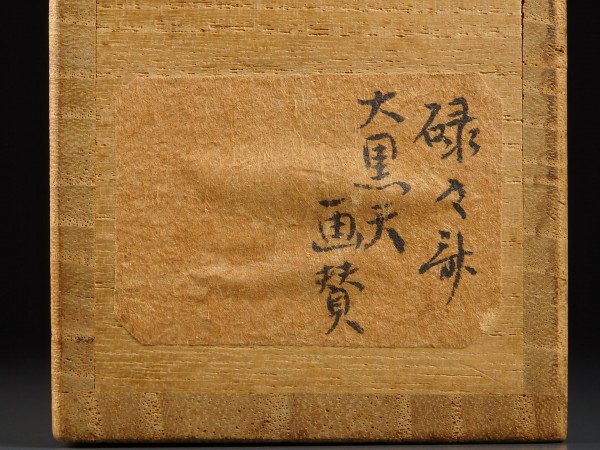 碌々斎
大黒天
画賛